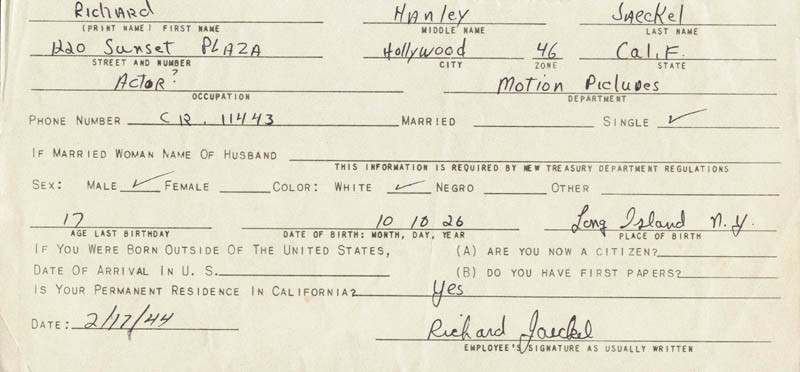 Richard Hanley Jaeckel
(PRINT NAME) FIRST NAME MIDDLE NAME LAST NAME
1220 Sunset PLAZA Hollywood 46 Cal.F.
STREET AND NUMBER CITY ZONE STATE
Actor? Motion Pictures
OCCUPATION DEPARTMENT
PHONE NUMBER CR. 11443 MARRIED SINGLE ✓
IF MARRIED WOMAN NAME OF HUSBAND
THIS INFORMATION IS REQUIRED BY NEW TREASURY DEPARTMENT REGULATIONS
SEX: MALE ✓ FEMALE COLOR: WHITE ✓ NEGRO OTHER
17 10 10 26 Long Island N.Y.
AGE LAST BIRTHDAY DATE OF BIRTH: MONTH, DAY, YEAR PLACE OF BIRTH
IF YOU WERE BORN OUTSIDE OF THE UNITED STATES, (A) ARE YOU NOW A CITIZEN?
DATE OF ARRIVAL IN U. S. (B) DO YOU HAVE FIRST PAPERS?
IS YOUR PERMANENT RESIDENCE IN CALIFORNIA? Yes
DATE: 2/17/44 Richard Jaeckel
EMPLOYEE'S SIGNATURE AS USUALLY WRITTEN